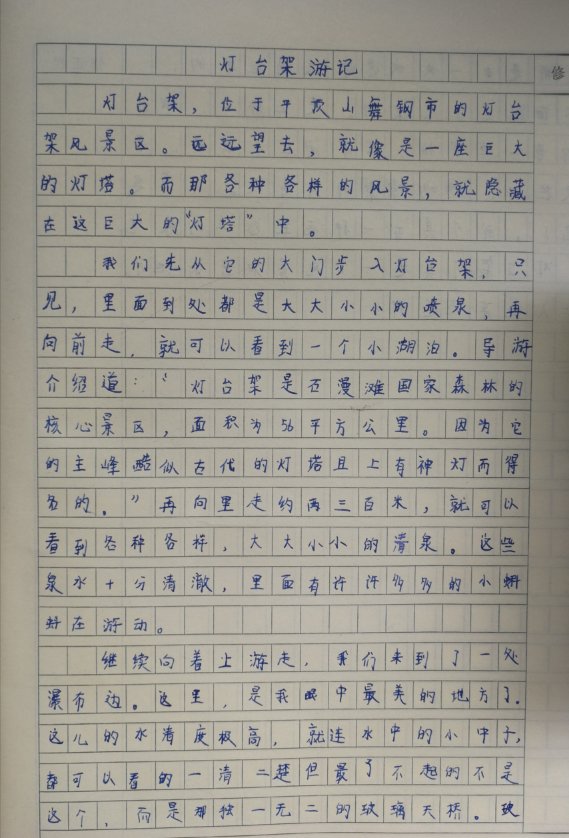 修
灯台架游记
灯台架，位于平顶山舞钢市的灯台
架风景区。远远望去，就像是一座巨大
的灯塔。而那各种各样的风景，就隐藏
在这巨大的“灯塔”中。
我们先从它的大门步入灯台架，只
见，里面到处都是大大小小的喷泉，再
向前走，就可以看到一个小湖泊。导游
介绍道：“灯台架是石漫滩国家森林的
核心景区，面积为56平方公里。因为它
的主峰酷似古代的灯塔且上有神灯而得
名的。”再向里走约两三百米，就可以
看到各种各样，大大小小的清泉。这些
泉水十分清澈，里面有许许多多的小蝌
蚪在游动。
继续向着上游走，我们来到了一处
瀑布边。这里，是我眼中最美的地方了。
这儿的水清度极高，就连水中的小虫子，
都可以看的一清二楚但最了不起的不是
这个，而是那独一无二的玻璃天桥。玻